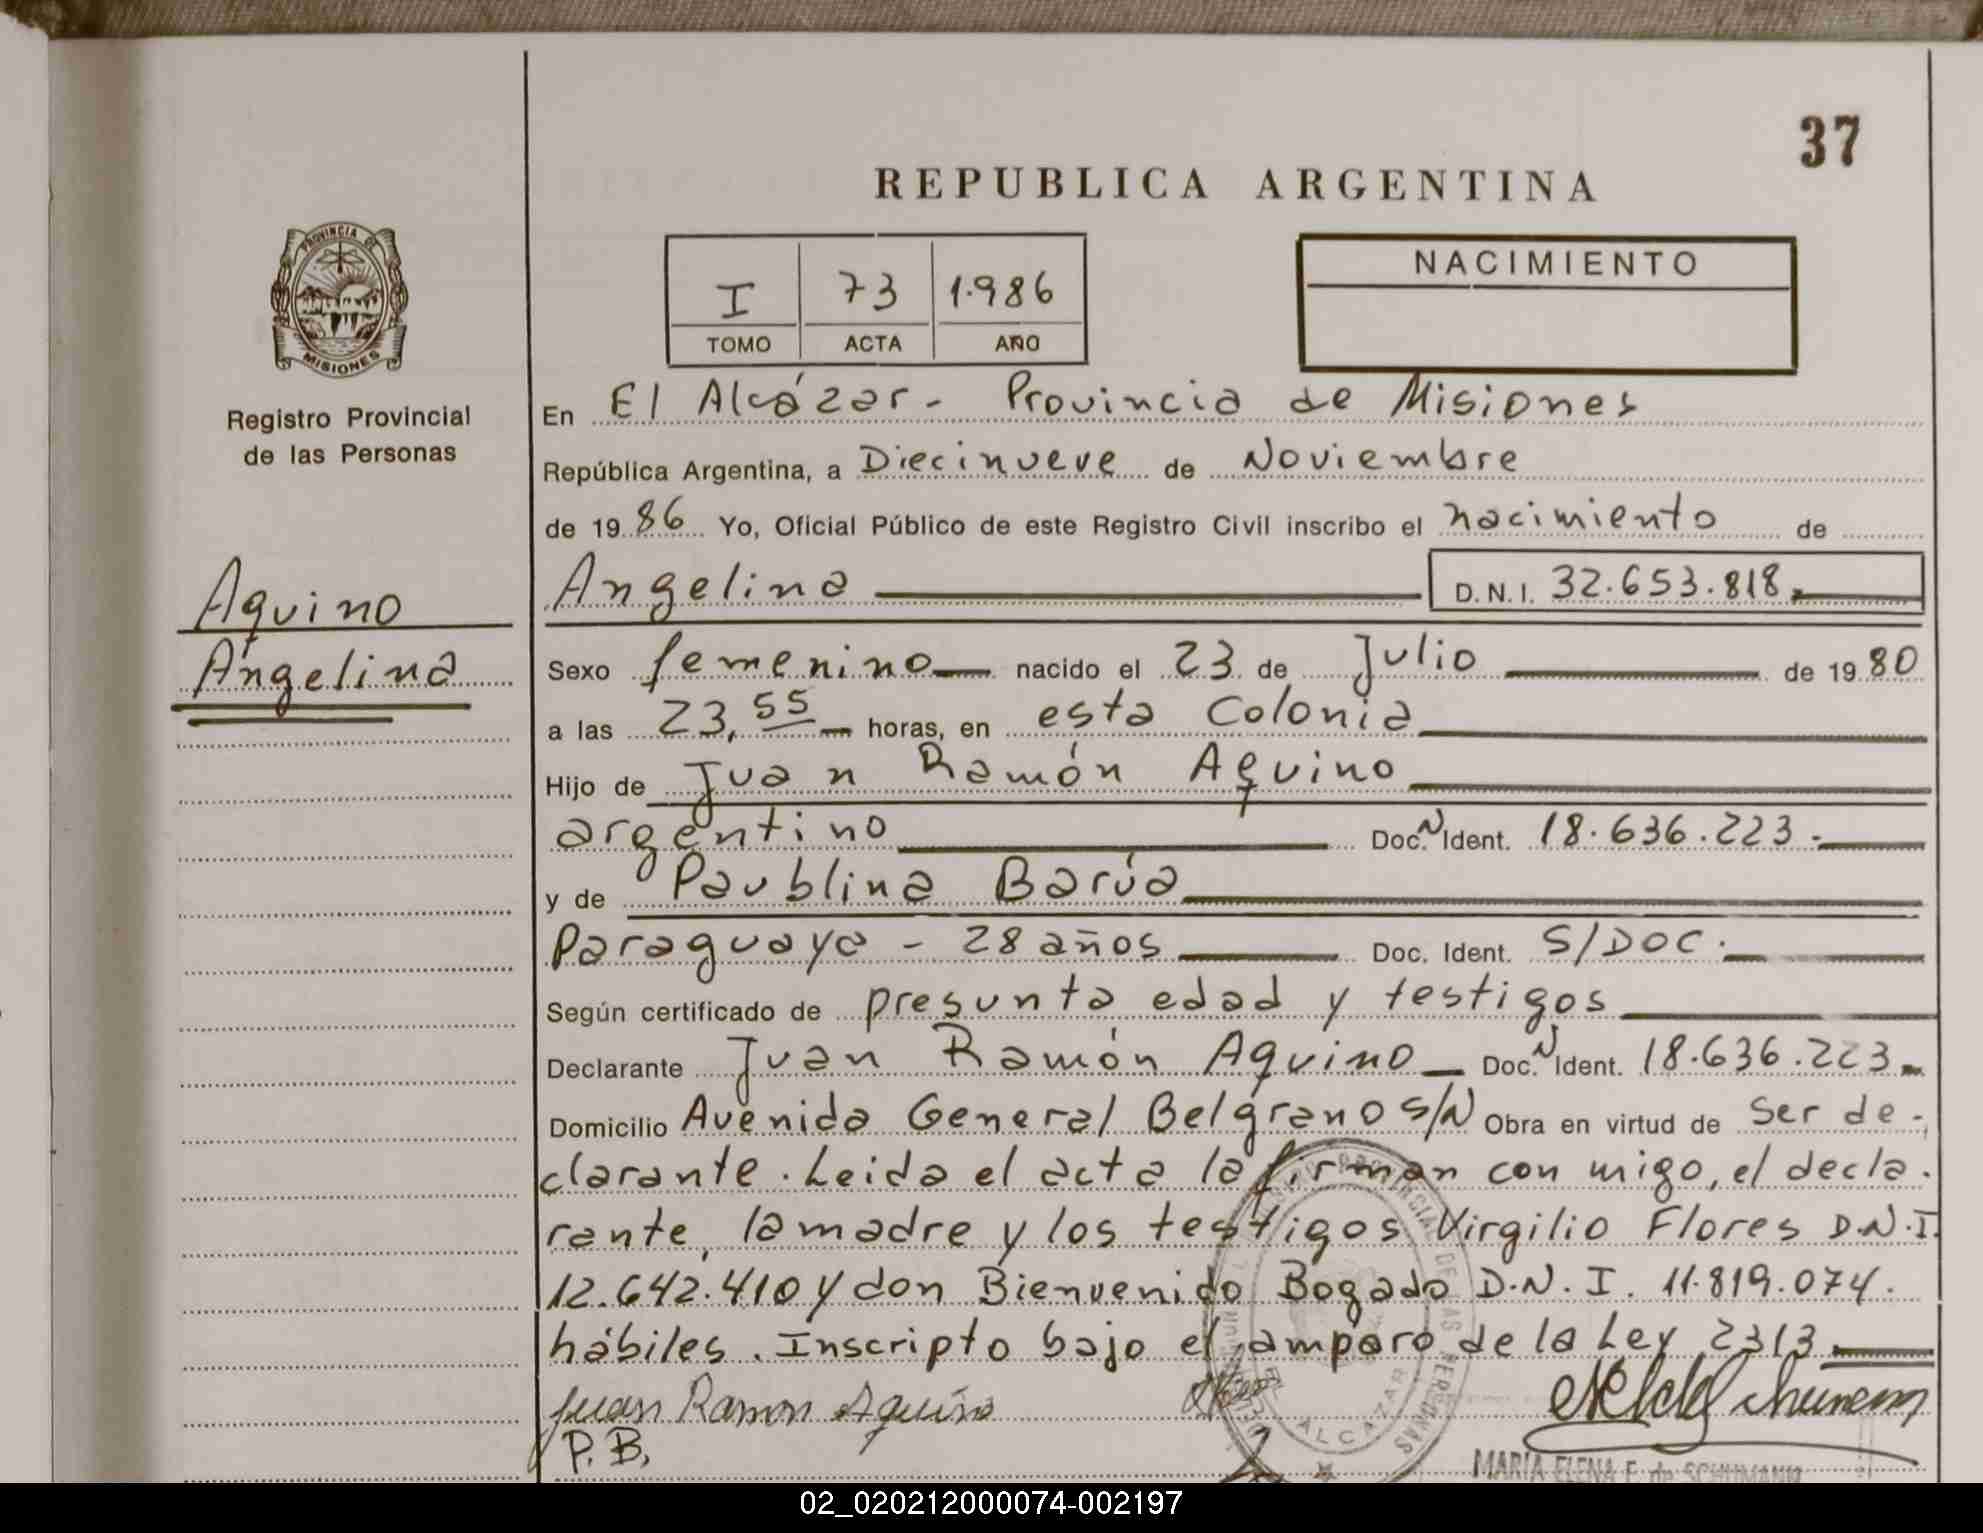 37
REPUBLICA ARGENTINA
PROVINCIA DE
MISIONES
Registro Provincial
de las Personas
I 73 1.986
TOMO ACTA AÑO
NACIMIENTO
En El Alcázar - Provincia de Misiones
República Argentina, a Diecinueve de Noviembre
de 19 86 Yo, Oficial Público de este Registro Civil inscribo el nacimiento de
Aquino
Angelina
Angelina D.N.I. 32.653.818.
Sexo femenino nacido el 23 de Julio de 19 80
a las 23,55 horas, en esta Colonia
Hijo de Juan Ramón Aquino
argentino Doc. N Ident. 18.636.223.
y de Paublina Barúa
Paraguaya - 28 años Doc. Ident. S/DOC.
Según certificado de presunta edad y testigos
Declarante Juan Ramón Aquino Doc. N Ident. 18.636.223
Domicilio Avenida General Belgrano S/N Obra en virtud de Ser de-
clarante. Leida el acta la firman con migo, el decla-
rante, la madre y los testigos Virgilio Flores D.N.I.
12.642.410 y don Bienvenido Bogado D.N.I. 11.819.074.
hábiles. Inscripto bajo el amparo de la Ley 2313
Juan Ramon Aquino
P.B.
ALCAZAR
MARIA ELENA F. de SCHUMANN
02_020212000074-002197